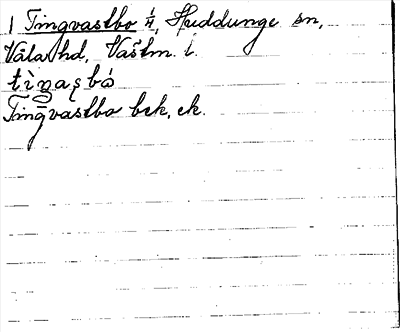 1 Tingvastbo 1/4, Huddunge sn,
Våla hd, Vastm. l.
tìŋasbó
Tingvastbo bck, ek.